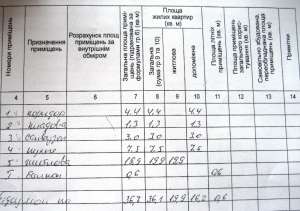 Номери приміщень
Призначення приміщень
Розрахунок площ приміщення за внутрішнім обміром
Загальна площа приміщень (підрахована за формулами гр.6) (кв. м)
Площа житлових квартир (кв. м)
Загальна (сума гр.9 та 10)
житлова
допоміжна
Площа літніх приміщень (кв. м)
Площа приміщень загального користування (кв. м)
Самовільно збудована переобладнана площа приміщення (кв. м)
Примітки
4 5 6 7 8 9 10 11 12 13 14
1 коридор 4,4 4,4 4,4
2 кладова 1,3 1,3 1,3
3 санвузол 3,0 3,0 3,0
4 кухня 7,5 7,5 7,5
5 житлова 19,9 19,9 19,9
I балкон 0,6 0,6
36,7 36,1 19,9 16,2 0,6